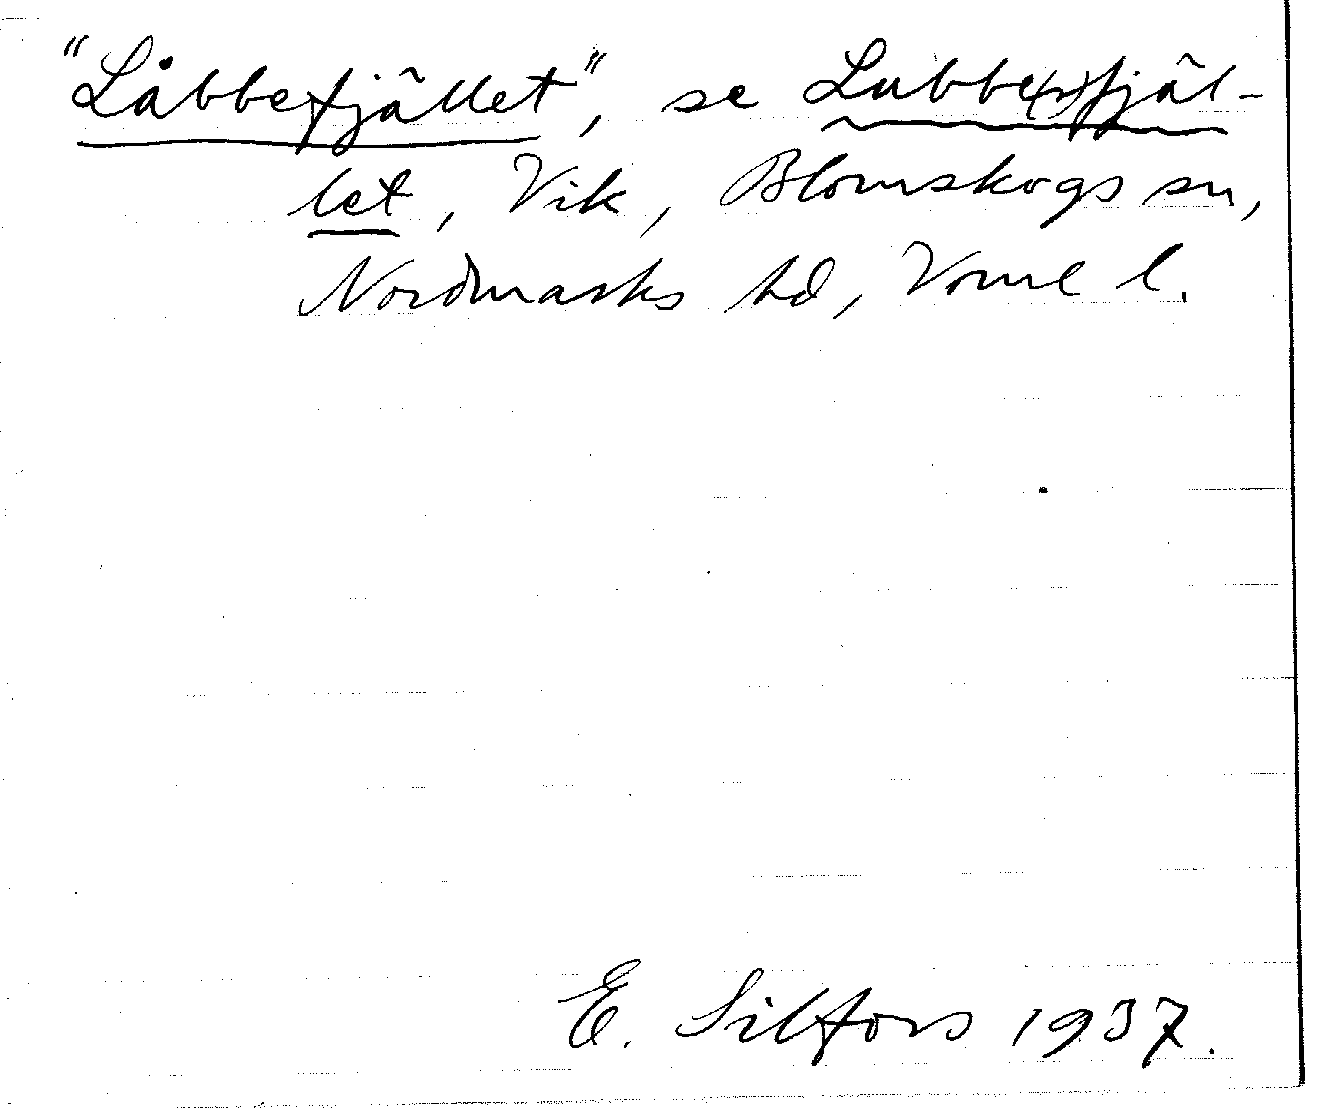 "Låbbefjället", se Lubbe(r)fjäl-
let, Vik, Blomskogs sn,
Nordmarks hd, Vrml l.
E. Silfors 1937.